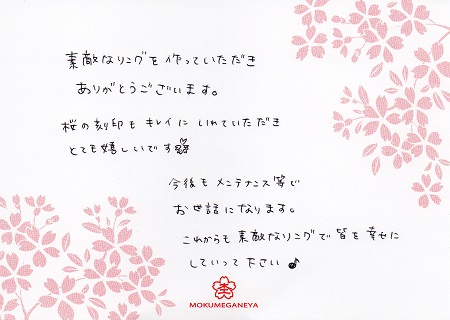 素敵なリングを作っていただき
ありがとうございます。
桜の刻印もキレイにいれていただき
とても嬉しいです
今後もメンテナンス等で
お世話になります。
これからも素敵なリングで皆を幸せに
していって下さい♪
MOKUMEGANEYA